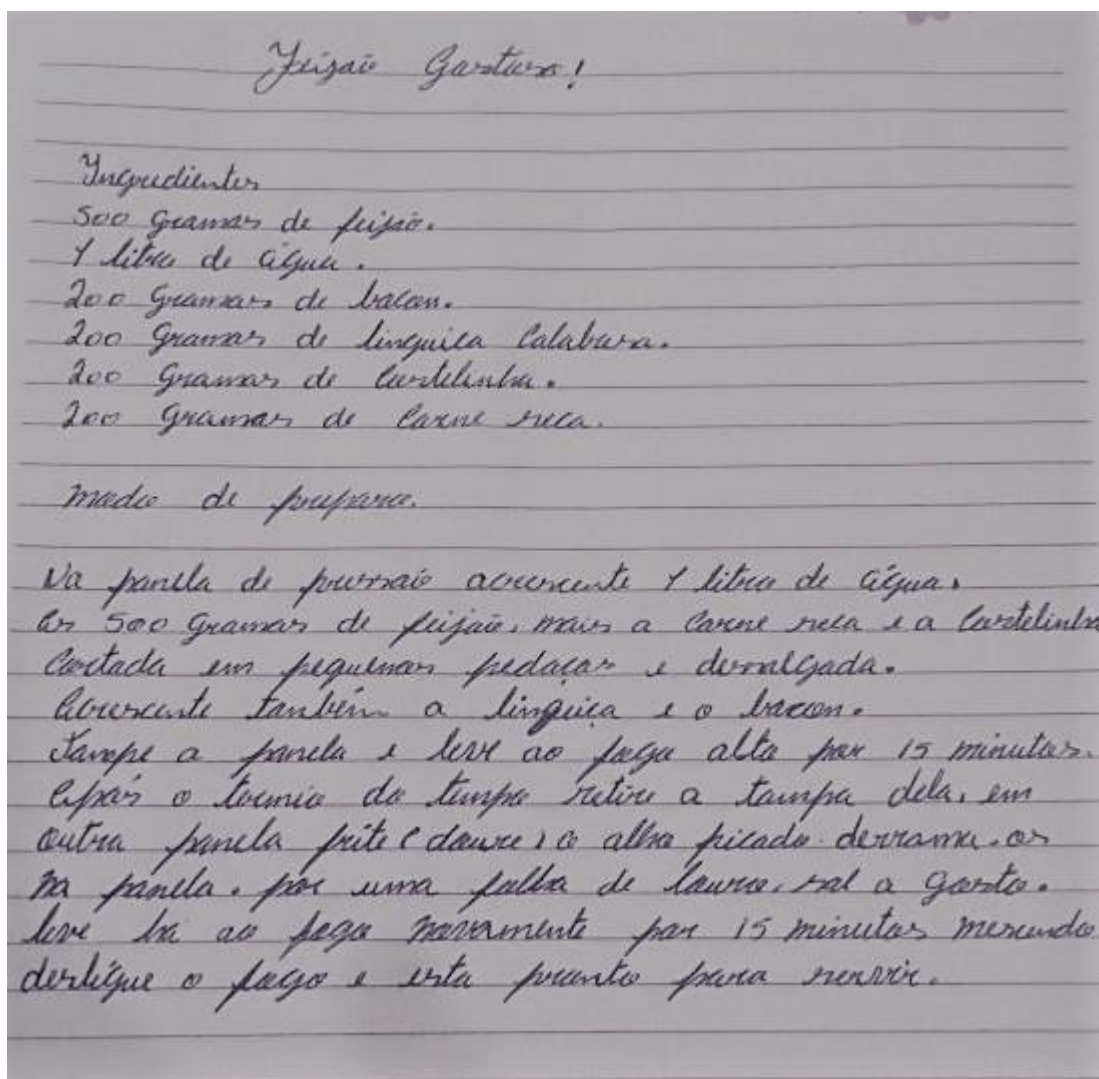 Feijão Gostoso!
Ingredientes
500 Gramas de feijão.
1 litro de água.
200 Gramas de bacon.
200 Gramas de linguica Calabresa.
200 Gramas de Costelinha.
200 Gramas de Carne seca.
modo de preparo.
Na panela de pressão acrescente 1 litro de água.
os 500 Gramas de feijão, mais a Carne seca e a Costelinha
Cortada em pequenos pedaços e dessalgada.
Acrescente também a linguiça e o bacon.
Tampe a panela e leve ao fogo alto por 15 minutos.
Após o termio do tempo retire a tampa dela, em
outra panela frite (doure) o alho picado derrama-os
na panela. por uma folha de louro, sal a gosto.
leve ha ao fogo novamente por 15 minutos mexendo.
desligue o fogo e esta pronto para servir.